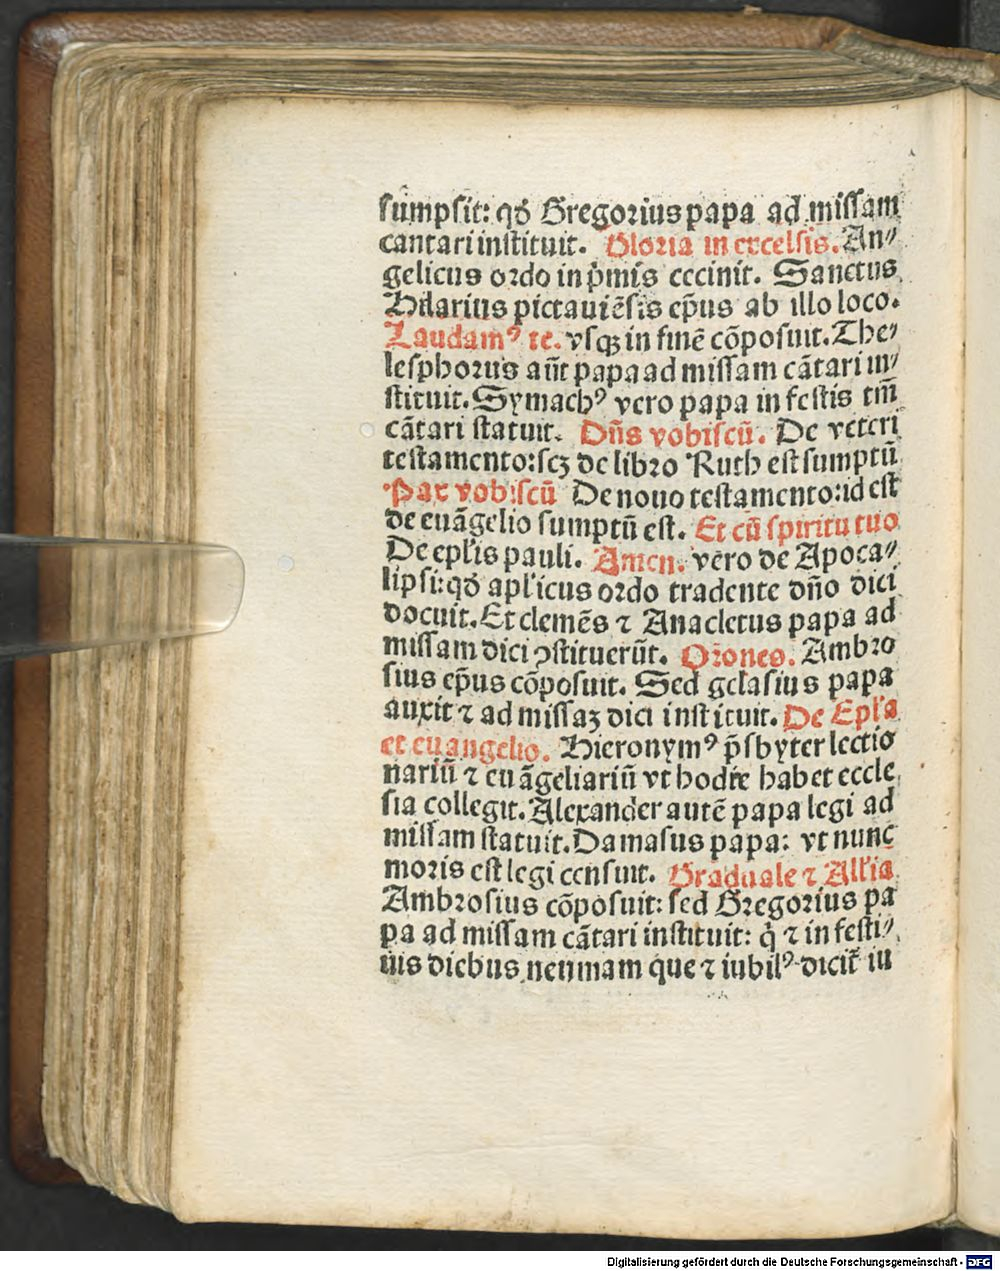 sumpsit: qđ Gregorius papa ad missam
cantari instituit. Gloria in excelsis. An⸗
gelicus ordo in p̃mis cecinit. Sanctus
Hilarius pictauiẽsis ep̃us ab illo loco.
Laudamꝰ te. vsqꝫ in finẽ cõposuit. The⸗
lesphorus aũt papa ad missam cãtari in⸗
stituit. Symachꝰ vero papa in festis tm̃
cãtari statuit. Dñs vobiscũ. De veteri
testamento: scꝫ de libro Ruth est sumptũ
Pax vobiscũ De nouo testamento: id est
de euãgelio sumptũ est. Et cũ spiritu tuo
De epl̃is pauli. Amen. vero de Apoca⸗
lipsi: qđ apl̃icus ordo tradente dño dici
docuit. Et clemẽs ⁊ Anacletus papa ad
missam dici ꝯstituerũt. Or̃ones. Ambro
sius ep̃us cõposuit. Sed gelasius papa
auxit ⁊ ad missaꝫ dici instituit. De Epl̃a
et euangelio. Hieronymꝰ p̃sbyter lectio
nariũ ⁊ euãgeliariũ vt hodie habet eccle
sia collegit. Alexander autẽ papa legi ad
missam statuit. Damasus papa: vt nunc
moris est legi censuit. Graduale ⁊ All̃ia
Ambrosius cõposuit: sed Gregorius pa
pa ad missam cãtari instituit: q̇ ⁊ in festi⸗
uis diebus neumam que ⁊ iubilꝰ dicit̃ iu
Digitalisierung gefördert durch die Deutsche Forschungsgemeinschaft - DFG